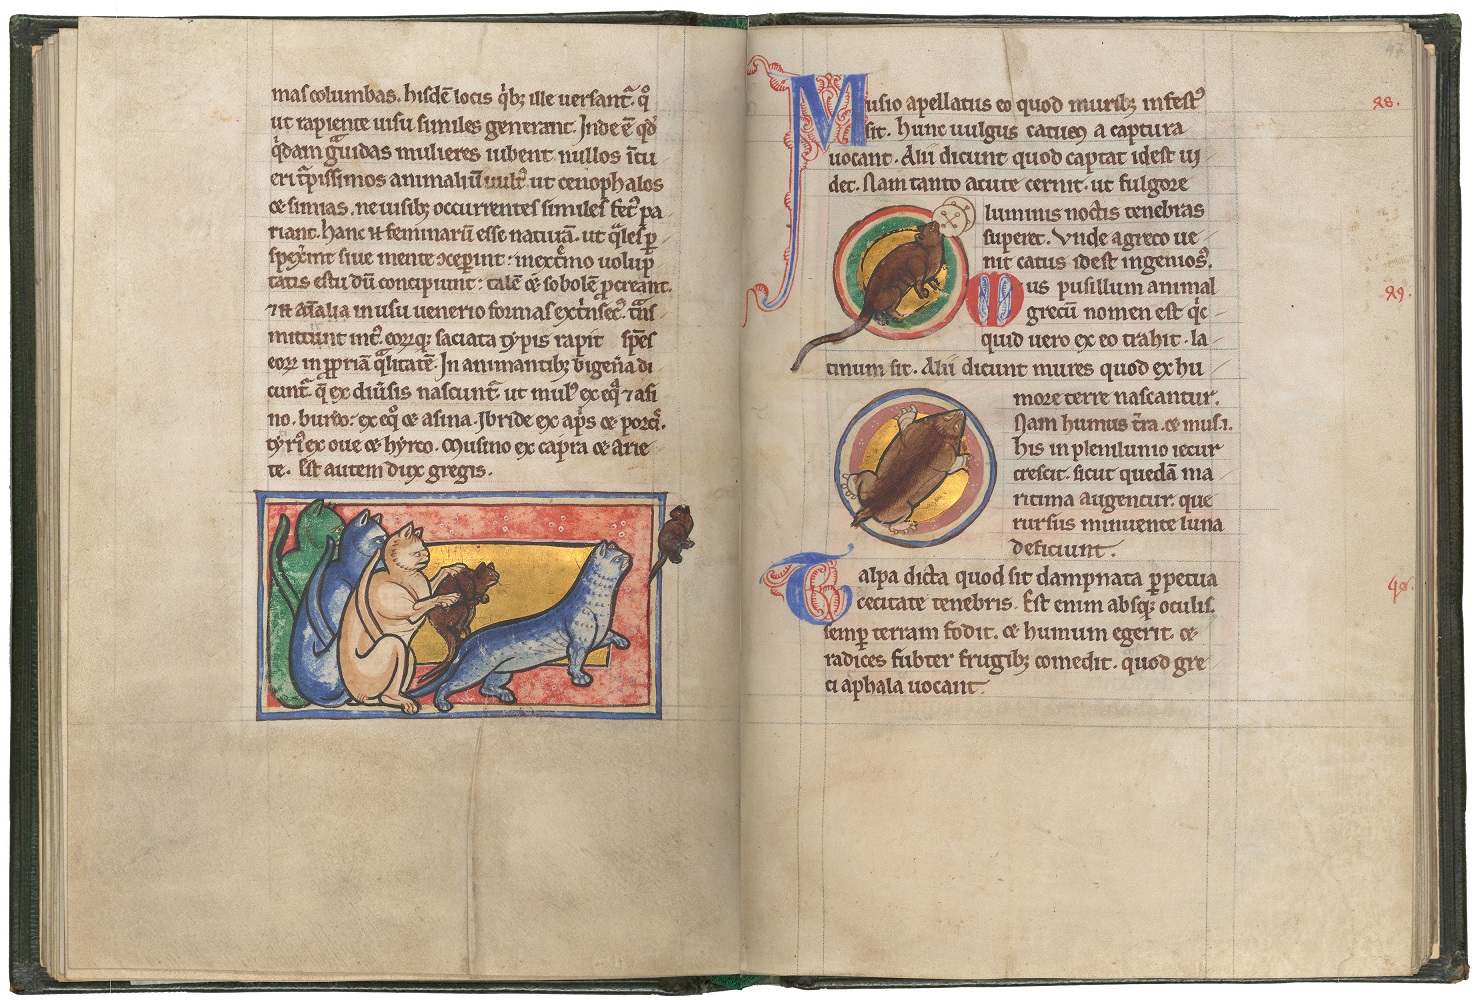 mas columbas. hisdē locis q'b; ille uersant᷑. q°
ut rapiente uisu similes generant. Inde ē qd̄
q'dam grauidas mulieres iubent nullos ītu
eri t'pissimos animaliū uult' ut cenophalos
& simias. ne uisib; occurrentes similes fet' pa
riant. hanc .n. feminarū esse naturā. ut q̄les p
spex'int siue mente ɔcep̄int: in ext'mo uolup
tatis estu dū concipiunt: talē & sobolē pcreant.
&n̄ aīalia in usu uenerio formas ext'nsec'. t̄ns
mittunt int'. eorūq; saciata typis rapit sp̄es
eorū in p̄priā q̄litatē. In animantib; bigen̄a di
cunt᷑. q̄ ex diu'sis nascunt᷑. ut mul' ex eq̄ ⁊ asi
no. burdo: ex eq° & asina. Ibride ex ap'is & porcī.
tyri' ex oue & hyrco. Musino ex capra & arie
te. Est autem dux gregis.
47
Musio apellatus eo quod murib; infest'
sit. hunc uulgus catum a captura
uocant. Alii dicunt quod captat idest ui
det. Nam tanto acute cernit. ut fulgore
luminis noctis tenebras
superet. Vnde a greco ue
nit catus idest ingenios'.
Mus pusillum animal
grecū nomen est q̇c
quid uero ex eo trahit. la
tinum fit. Alii dicunt mures quod ex hu
more terre nascantur.
Nam humus t̄ra. & mus .i.
his in plenilunio iecur
crescit. sicut quedā ma
ritima augentur. que
rursus minuente luna
deficiunt.
Talpa dicta quod sit dampnata p̄petua
cecitate tenebris. Est enim absq; oculis.
semp̄ terram fodit. & humum egerit. &
radices subter frugib; comedit. quod gre
ci aphala uocant.
88.
89.
90.